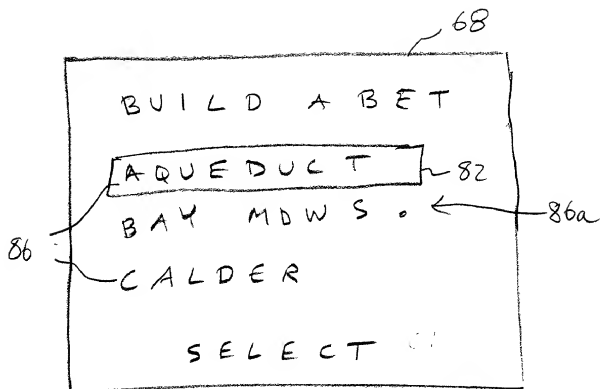 68
BUILD A BET
AQUEDUCT 82
BAY MDWS. 86a
86
CALDER
SELECT